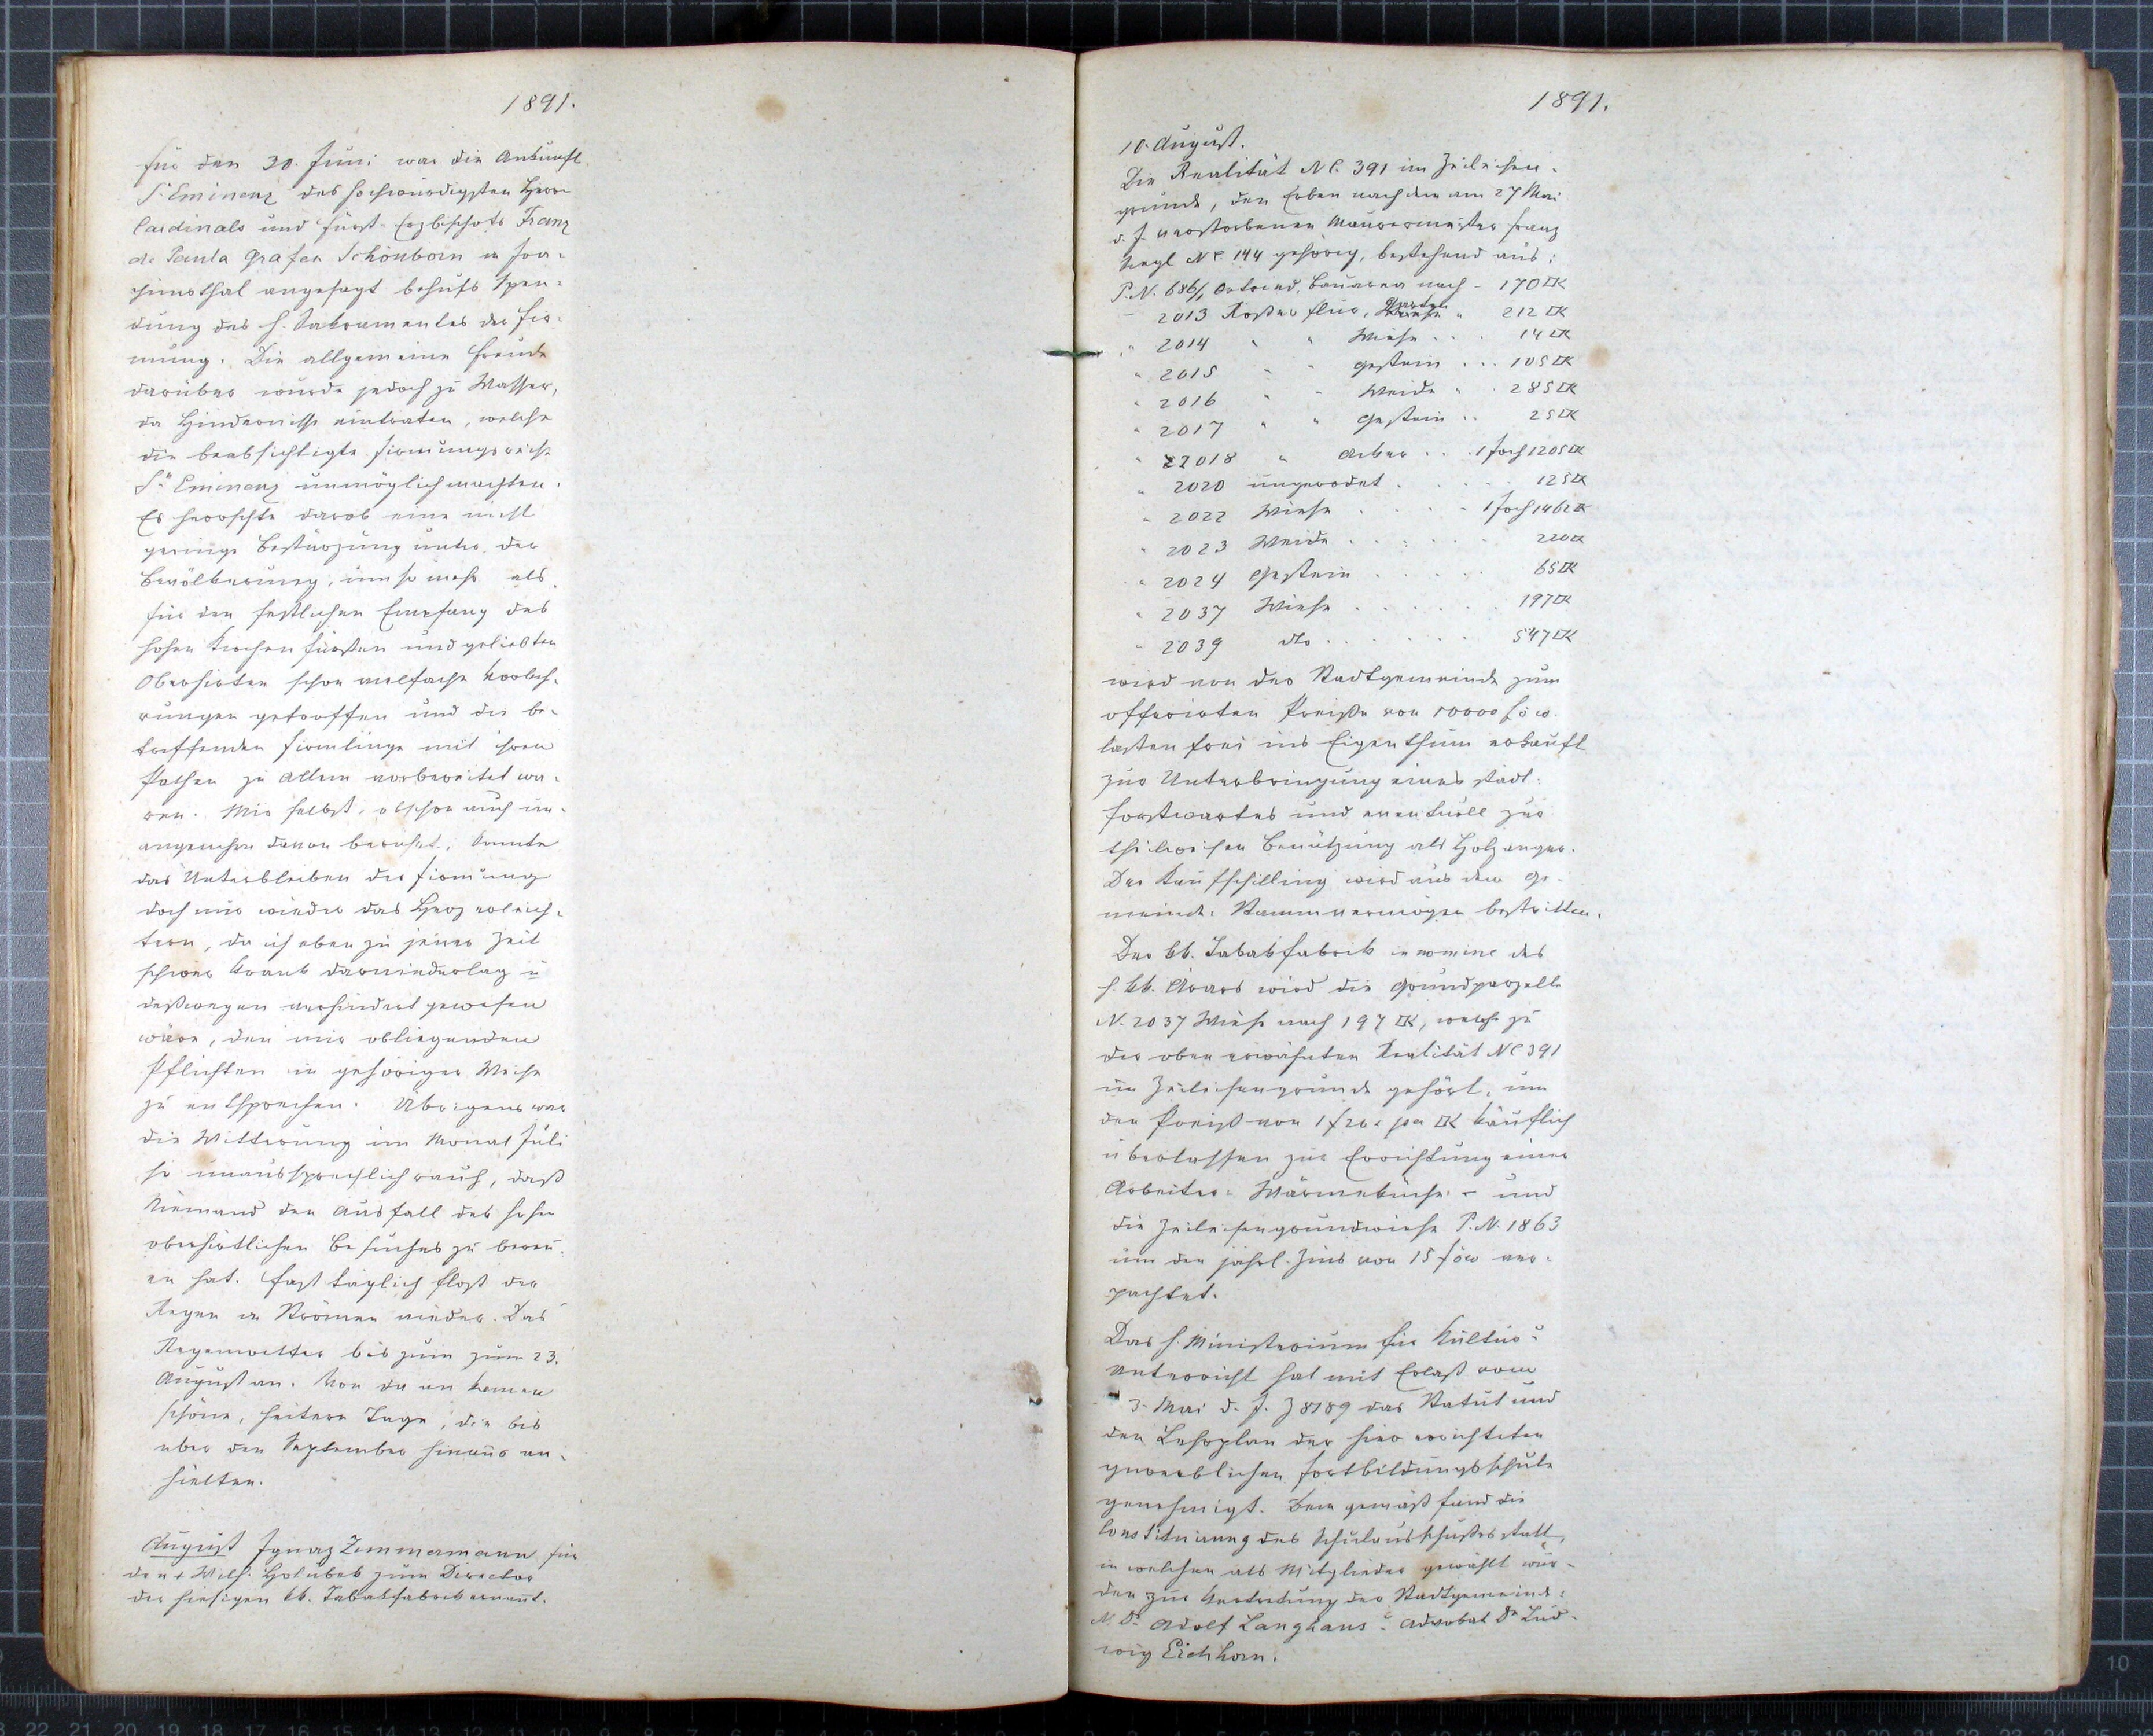 1891.
für den 30. Juni war die Ankunft
Sr Eminenz des hochwürdigsten Herrn
Cardinals und Fürst-Erzbischofs Franz
de Paula Grafen Schönborn in Joa-
chimsthal angesagt behufs Spen-
dung des h. Sakramentes der Fir-
mung. Die allgemeine Freude
darüber wurde jedoch zu Wasser,
da Hindernisse eintraten, welche
die beabsichtigte Firmungsreise
Sr Eminenz unmöglich machten.
Es herrschte darob eine nicht
geringe Bestürzung unter der
Bevölkerung, um so mehr als
für den festlichen Empfang des
hohen Kirchenfürsten und geliebten
Oberhirten schon vielfache Vorkeh-
rungen getroffen und die be-
treffenden Firmlinge mit ihren
Pathen zu Allem vorbereitet wa-
ren. Mir selbst, obschon auch un-
angenehm davon berührt, konnte
das Unterbleiben der Firmung
doch nur wieder das Herz erleich-
tern, da ich eben zu jener Zeit
schwer krank darniederlag u
deßwegen verhindert gewesen
wäre, den mir obliegenden
Pflichten in gehöriger Weise
zu entsprechen. Übrigens war
die Witterung im Monat Juli
so unaussprechlich rauh, daß
Niemand den Ausfall des hohen
oberhirtlichen Besuches zu bereu-
en hat. Fast täglich floß der
Regen in Strömen nieder. Das
Regenwetter bis zum zum 23.
August an. Von da an kamen
schöne, heitere Tage, die bis
über den September hinaus an-
hielten.
August Ignaz Zimmermann für
den + Wilh. Holubek zum Director
der hiesigen kk. Tabakfabrik ernannt.
1891.
10. August.
Die Realität NC. 391 im Zeileisen-
grunde, den Erben nach dem am 27 Mai
d. J. verstorbenen Maurermeister Franz
NC 144 gehörig, bestehend aus:
P.N. 686/1 Ortsried, Bauarea nach - 170 □K
- 2013 flur, Garten " 212 □K
" 2014 " " Wiese . . . 14 □K
" 2015 " " Gestein . . . 105 □K
" 2016 " " Weide " . 285 □K
" 2017 " " Gestein . . 25 □K
" 2018 " Acker . . . 1 Joch 1205 □K
" 2020 ungerodet . . . . . 125 □K
" 2022 Wiese . . . . . 1 Joch 1462 □K
" 2023 Weide . . . . . . 220 □K
" 2024 Gestein . . . . . 65 □K
" 2037 Wiese . . . . . . 197 □K
" 2039 dto . . . . . . 547 □K
wird von der Stadtgemeinde zum
offerirten Preise von 10000 f ö w.
lastenfrei ins Eigenthum erkauft
zur Unterbringung eines städt.
Forstwartes und eventuell zur
theilweisen Benützung als Holzanger.
Der Kaufschilling wird aus dem Ge-
meinde-Stammvermögen bestritten.
Der kk. Tabakfabrik in nomine des
h. kk. Ärars wird die Grundparzelle
N. 2037 Wiese nach 197 □K, welche zu
der oben erwähnten Realität NC 391
im Zeileisengrunde gehört, um
den Preis von 1 f 20 x per □K käuflich
überlassen zur Errichtung einer
Arbeiter-Wärmeküche - und
die Zeileisengrundwiese P.N. 1863
um den jährl. Zins von 15 f öw ver-
pachtet.
Das h. Ministerium für Kultus u
Unterricht hat mit Erlaß vom
3. Mai d. J. Z 8189 das Statut und
den Lehrplan der hier errichteten
gewerblichen Fortbildungsschule
genehmigt. Dem gemäß fand die
Constituirung des Schulausschußes statt,
in welchen als Mitglieder gewählt wur-
den zur Vertretung der Stadtgemeinde:
Dr Adolf Langhans u Advokat Dr Lud-
wig Eichhorn.